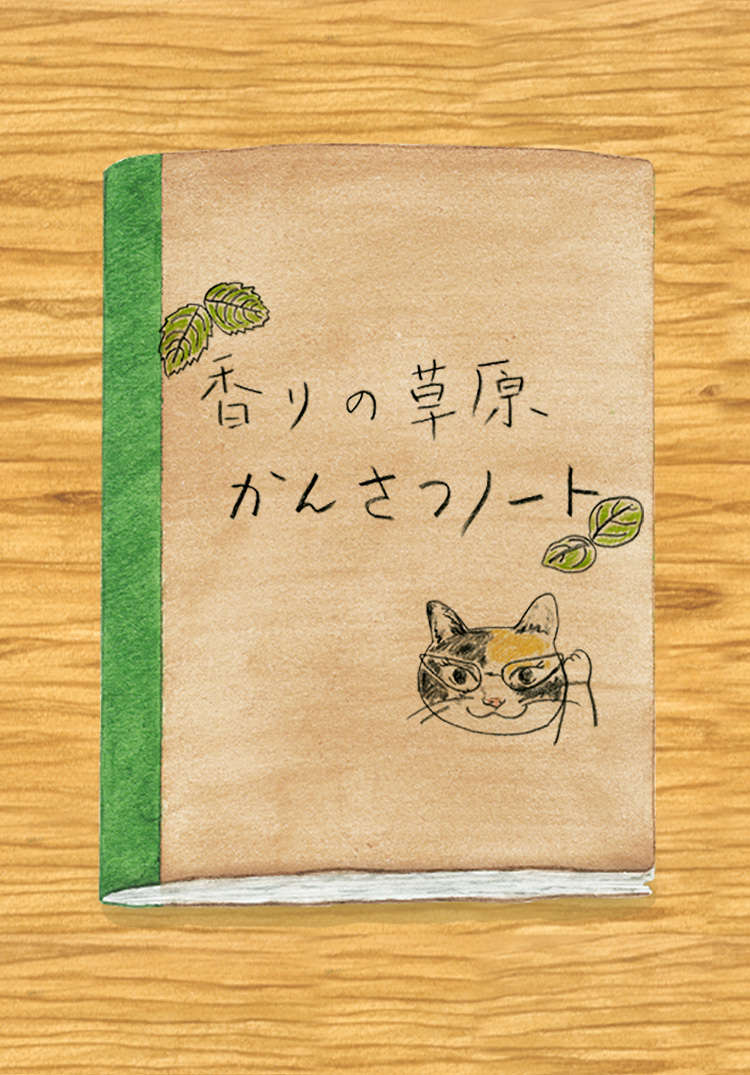 香りの草原
かんさつノート